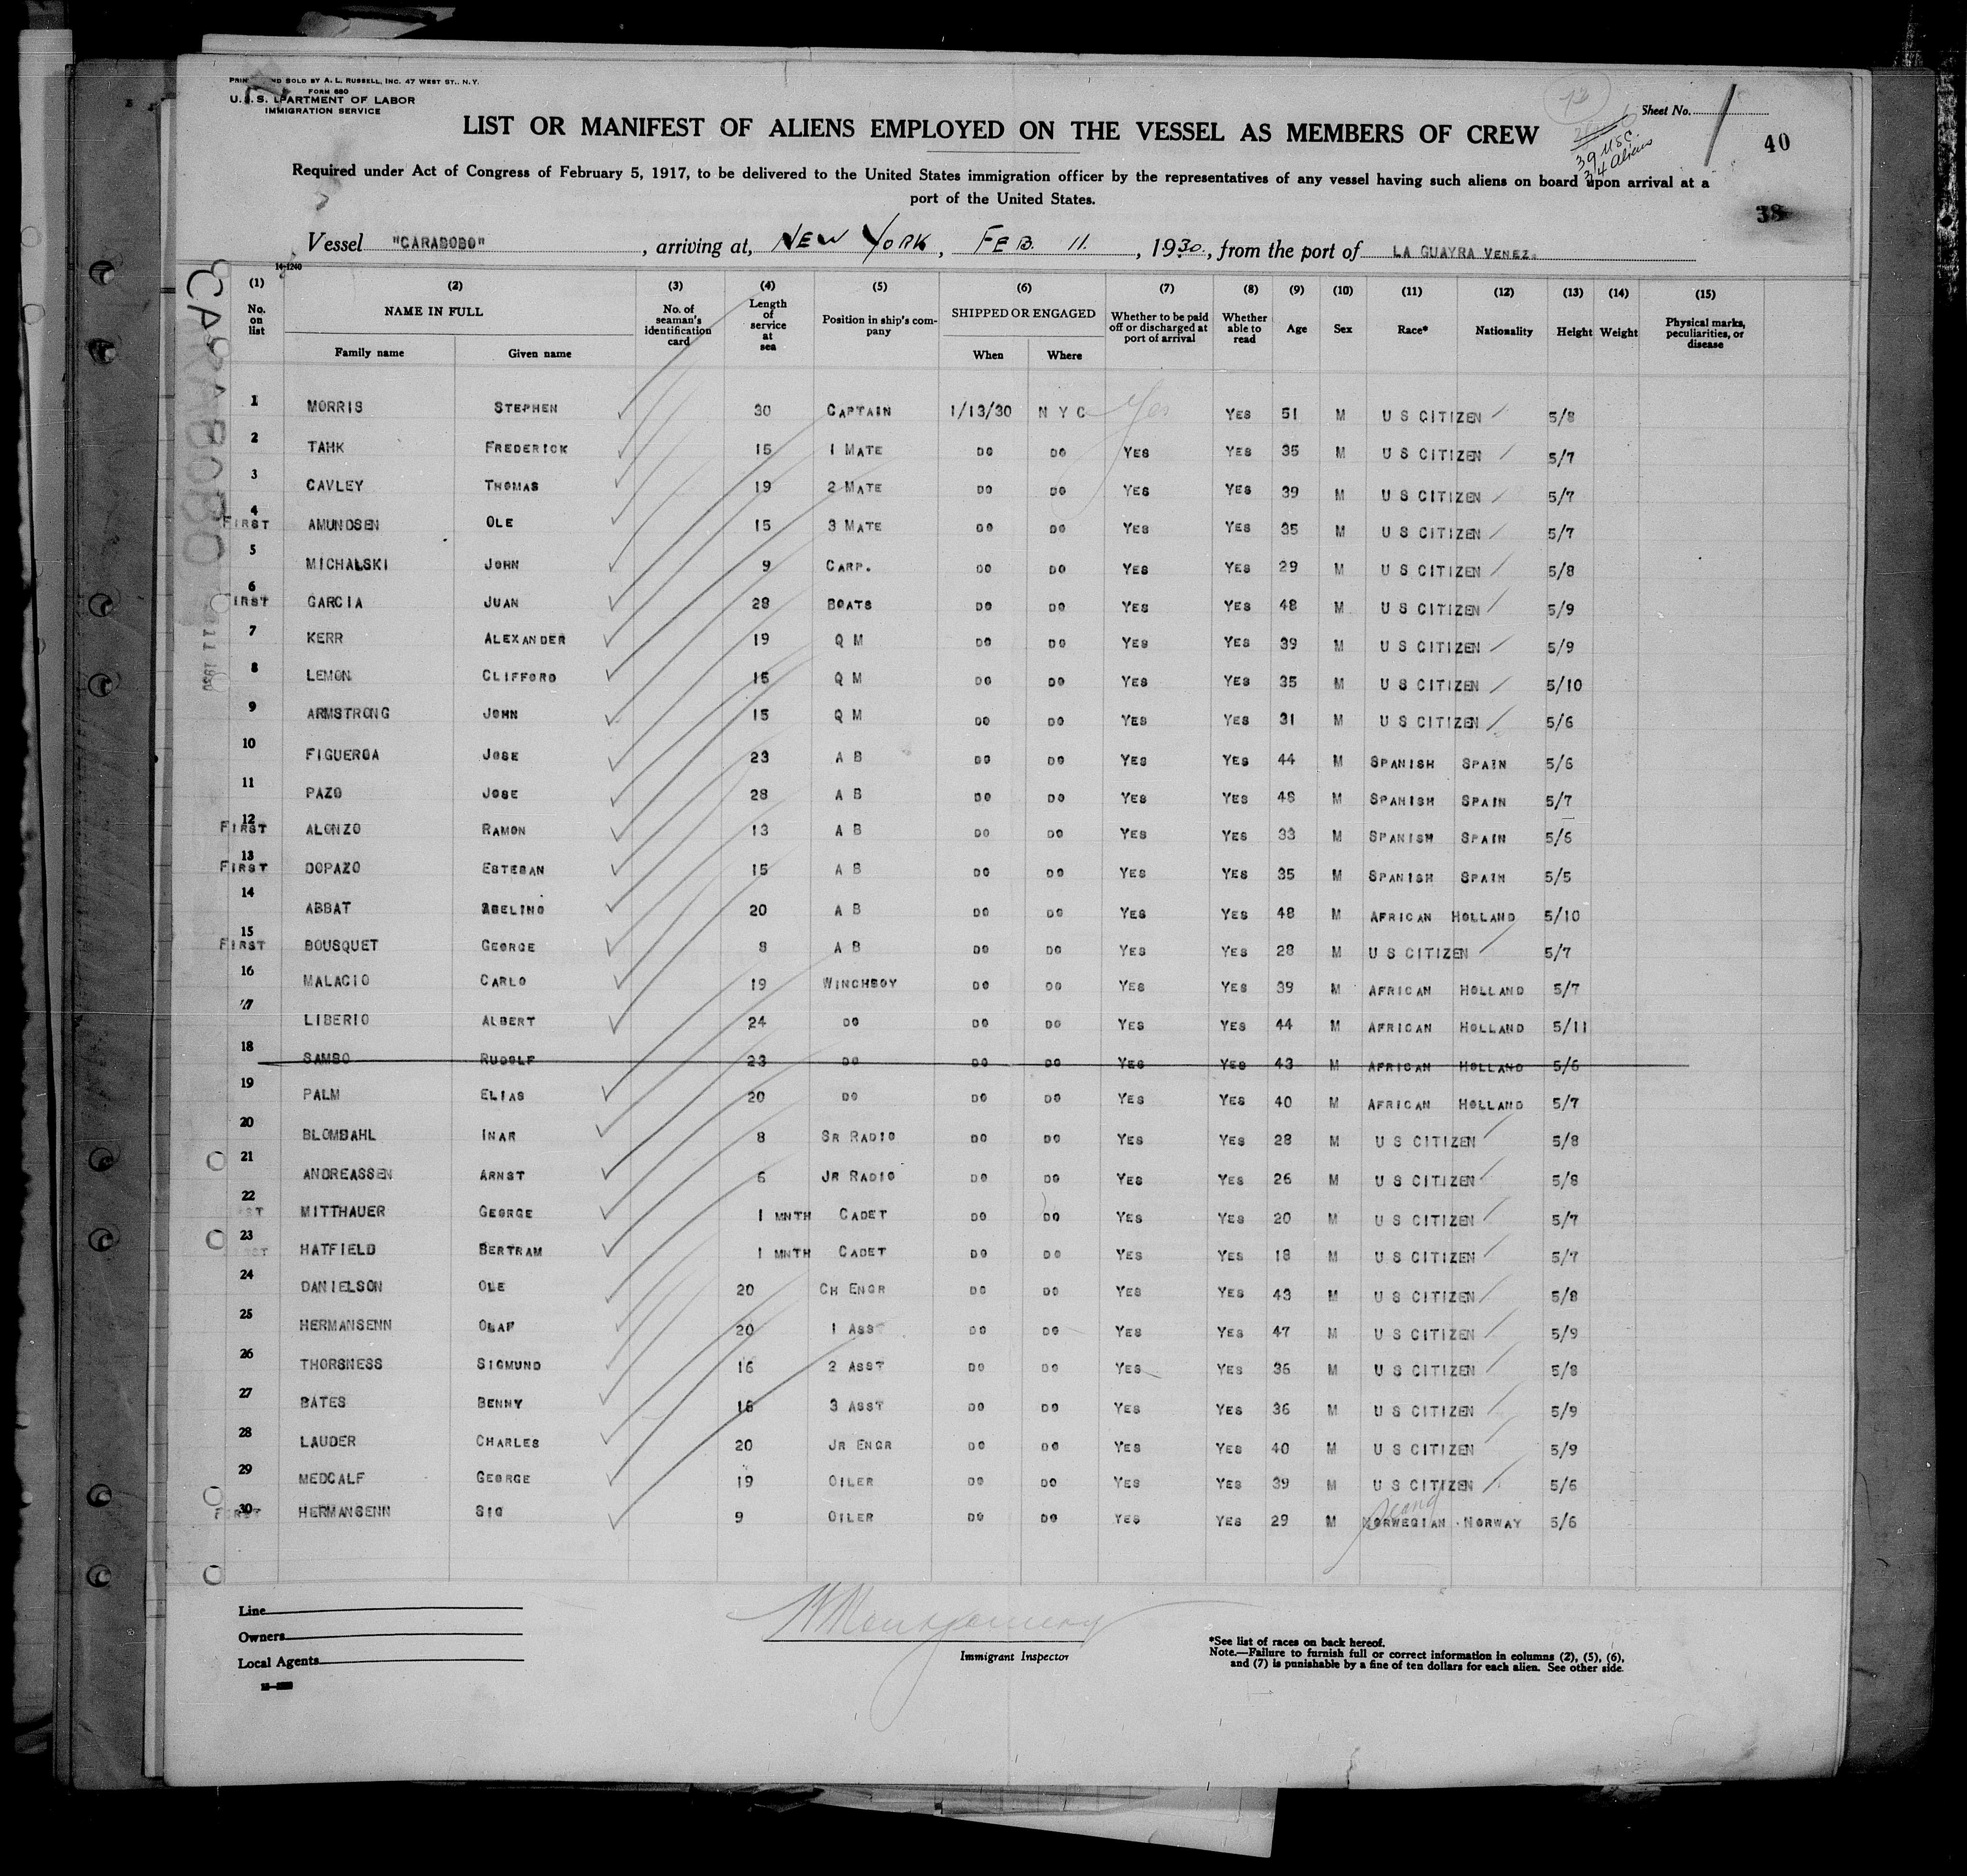 PRIN ND SOLD BY A. L. RUSSELL, INC. 47 WEST ST., N.Y.
FORM 680
U. S. PARTMENT OF LABOR
IMMIGRATION SERVICE
Sheet No. 1
LIST OR MANIFEST OF ALIENS EMPLOYED ON THE VESSEL AS MEMBERS OF CREW
40
39 USC.
34 Aliens
Required under Act of Congress of February 5, 1917, to be delivered to the United States immigration officer by the representatives of any vessel having such aliens on board upon arrival at a
port of the United States.
38
Vessel "CARABOBO", arriving at, NEW YORK, FEB. 11, 1930, from the port of LA GUAYRA VENEZ.
14-1240
CARABOBO
11 1930
(1) (2) (3) (4) (5) (6) (7) (8) (9) (10) (11) (12) (13) (14) (15)
No. on list NAME IN FULL No. of seaman's identification card Length of service at sea Position in ship's company SHIPPED OR ENGAGED Whether to be paid off or discharged at port of arrival Whether able to read Age Sex Race* Nationality Height Weight Physical marks, peculiarities, or disease
Family name Given name When Where
1 MORRIS STEPHEN 30 CAPTAIN 1/13/30 N Y C Yes YES 51 M U S CITIZEN 5/8
2 TAHK FREDERICK 15 1 MATE DO DO YES YES 35 M U S CITIZEN 5/7
3 CAVLEY THOMAS 19 2 MATE DO DO YES YES 39 M U S CITIZEN 5/7
4 FIRST AMUNDSEN OLE 15 3 MATE DO DO YES YES 35 M U S CITIZEN 5/7
5 MICHALSKI JOHN 9 CARP. DO DO YES YES 29 M U S CITIZEN 5/8
6 FIRST GARCIA JUAN 28 BOATS DO DO YES YES 48 M U S CITIZEN 5/9
7 KERR ALEXANDER 19 Q M DO DO YES YES 39 M U S CITIZEN 5/9
8 LEMON CLIFFORD 15 Q M DO DO YES YES 35 M U S CITIZEN 5/10
9 ARMSTRONG JOHN 15 Q M DO DO YES YES 31 M U S CITIZEN 5/6
10 FIGUEROA JOSE 23 A B DO DO YES YES 44 M SPANISH SPAIN 5/6
11 PAZO JOSE 28 A B DO DO YES YES 48 M SPANISH SPAIN 5/7
12 FIRST ALONZO RAMON 13 A B DO DO YES YES 33 M SPANISH SPAIN 5/6
13 FIRST DOPAZO ESTEBAN 15 A B DO DO YES YES 35 M SPANISH SPAIN 5/5
14 ABBAT 20 A B DO DO YES YES 48 M AFRICAN HOLLAND 5/10
15 FIRST BOUSQUET GEORGE 8 A B DO DO YES YES 28 M U S CITIZEN 5/7
16 MALACIO CARLO 19 WINCHBOY DO DO YES YES 39 M AFRICAN HOLLAND 5/7
17 LIBERIO ALBERT 24 DO DO DO YES YES 44 M AFRICAN HOLLAND 5/11
18 SAMBO RUDOLF 23 DO DO DO YES YES 43 M AFRICAN HOLLAND 5/6
19 PALM ELIAS 20 DO DO DO YES YES 40 M AFRICAN HOLLAND 5/7
20 BLOMDAHL INAR 8 SR RADIO DO DO YES YES 28 M U S CITIZEN 5/8
21 ANDREASSEN ARNST 6 JR RADIO DO DO YES YES 26 M U S CITIZEN 5/8
22 ST MITTHAUER GEORGE 1 MNTH CADET DO DO YES YES 20 M U S CITIZEN 5/7
23 ST HATFIELD BERTRAM 1 MNTH CADET DO DO YES YES 18 M U S CITIZEN 5/7
24 DANIELSON OLE 20 CH ENGR DO DO YES YES 43 M U S CITIZEN 5/8
25 HERMANSENN OLAF 20 1 ASST DO DO YES YES 47 M U S CITIZEN 5/9
26 THORSNESS SIGMUND 16 2 ASST DO DO YES YES 36 M U S CITIZEN 5/8
27 BATES BENNY 16 3 ASST DO DO YES YES 36 M U S CITIZEN 5/9
28 LAUDER CHARLES 20 JR ENGR DO DO YES YES 40 M U S CITIZEN 5/9
29 MEDCALF GEORGE 19 OILER DO DO YES YES 39 M U S CITIZEN 5/6
Scand
30 FIRST HERMANSENN SIG 9 OILER DO DO YES YES 29 M NORWEGIAN NORWAY 5/6
Line
Owners
Local Agents
Montgomery
Immigrant Inspector
*See list of races on back hereof.
Note.—Failure to furnish full or correct information in columns (2), (5), (6),
and (7) is punishable by a fine of ten dollars for each alien. See other side.